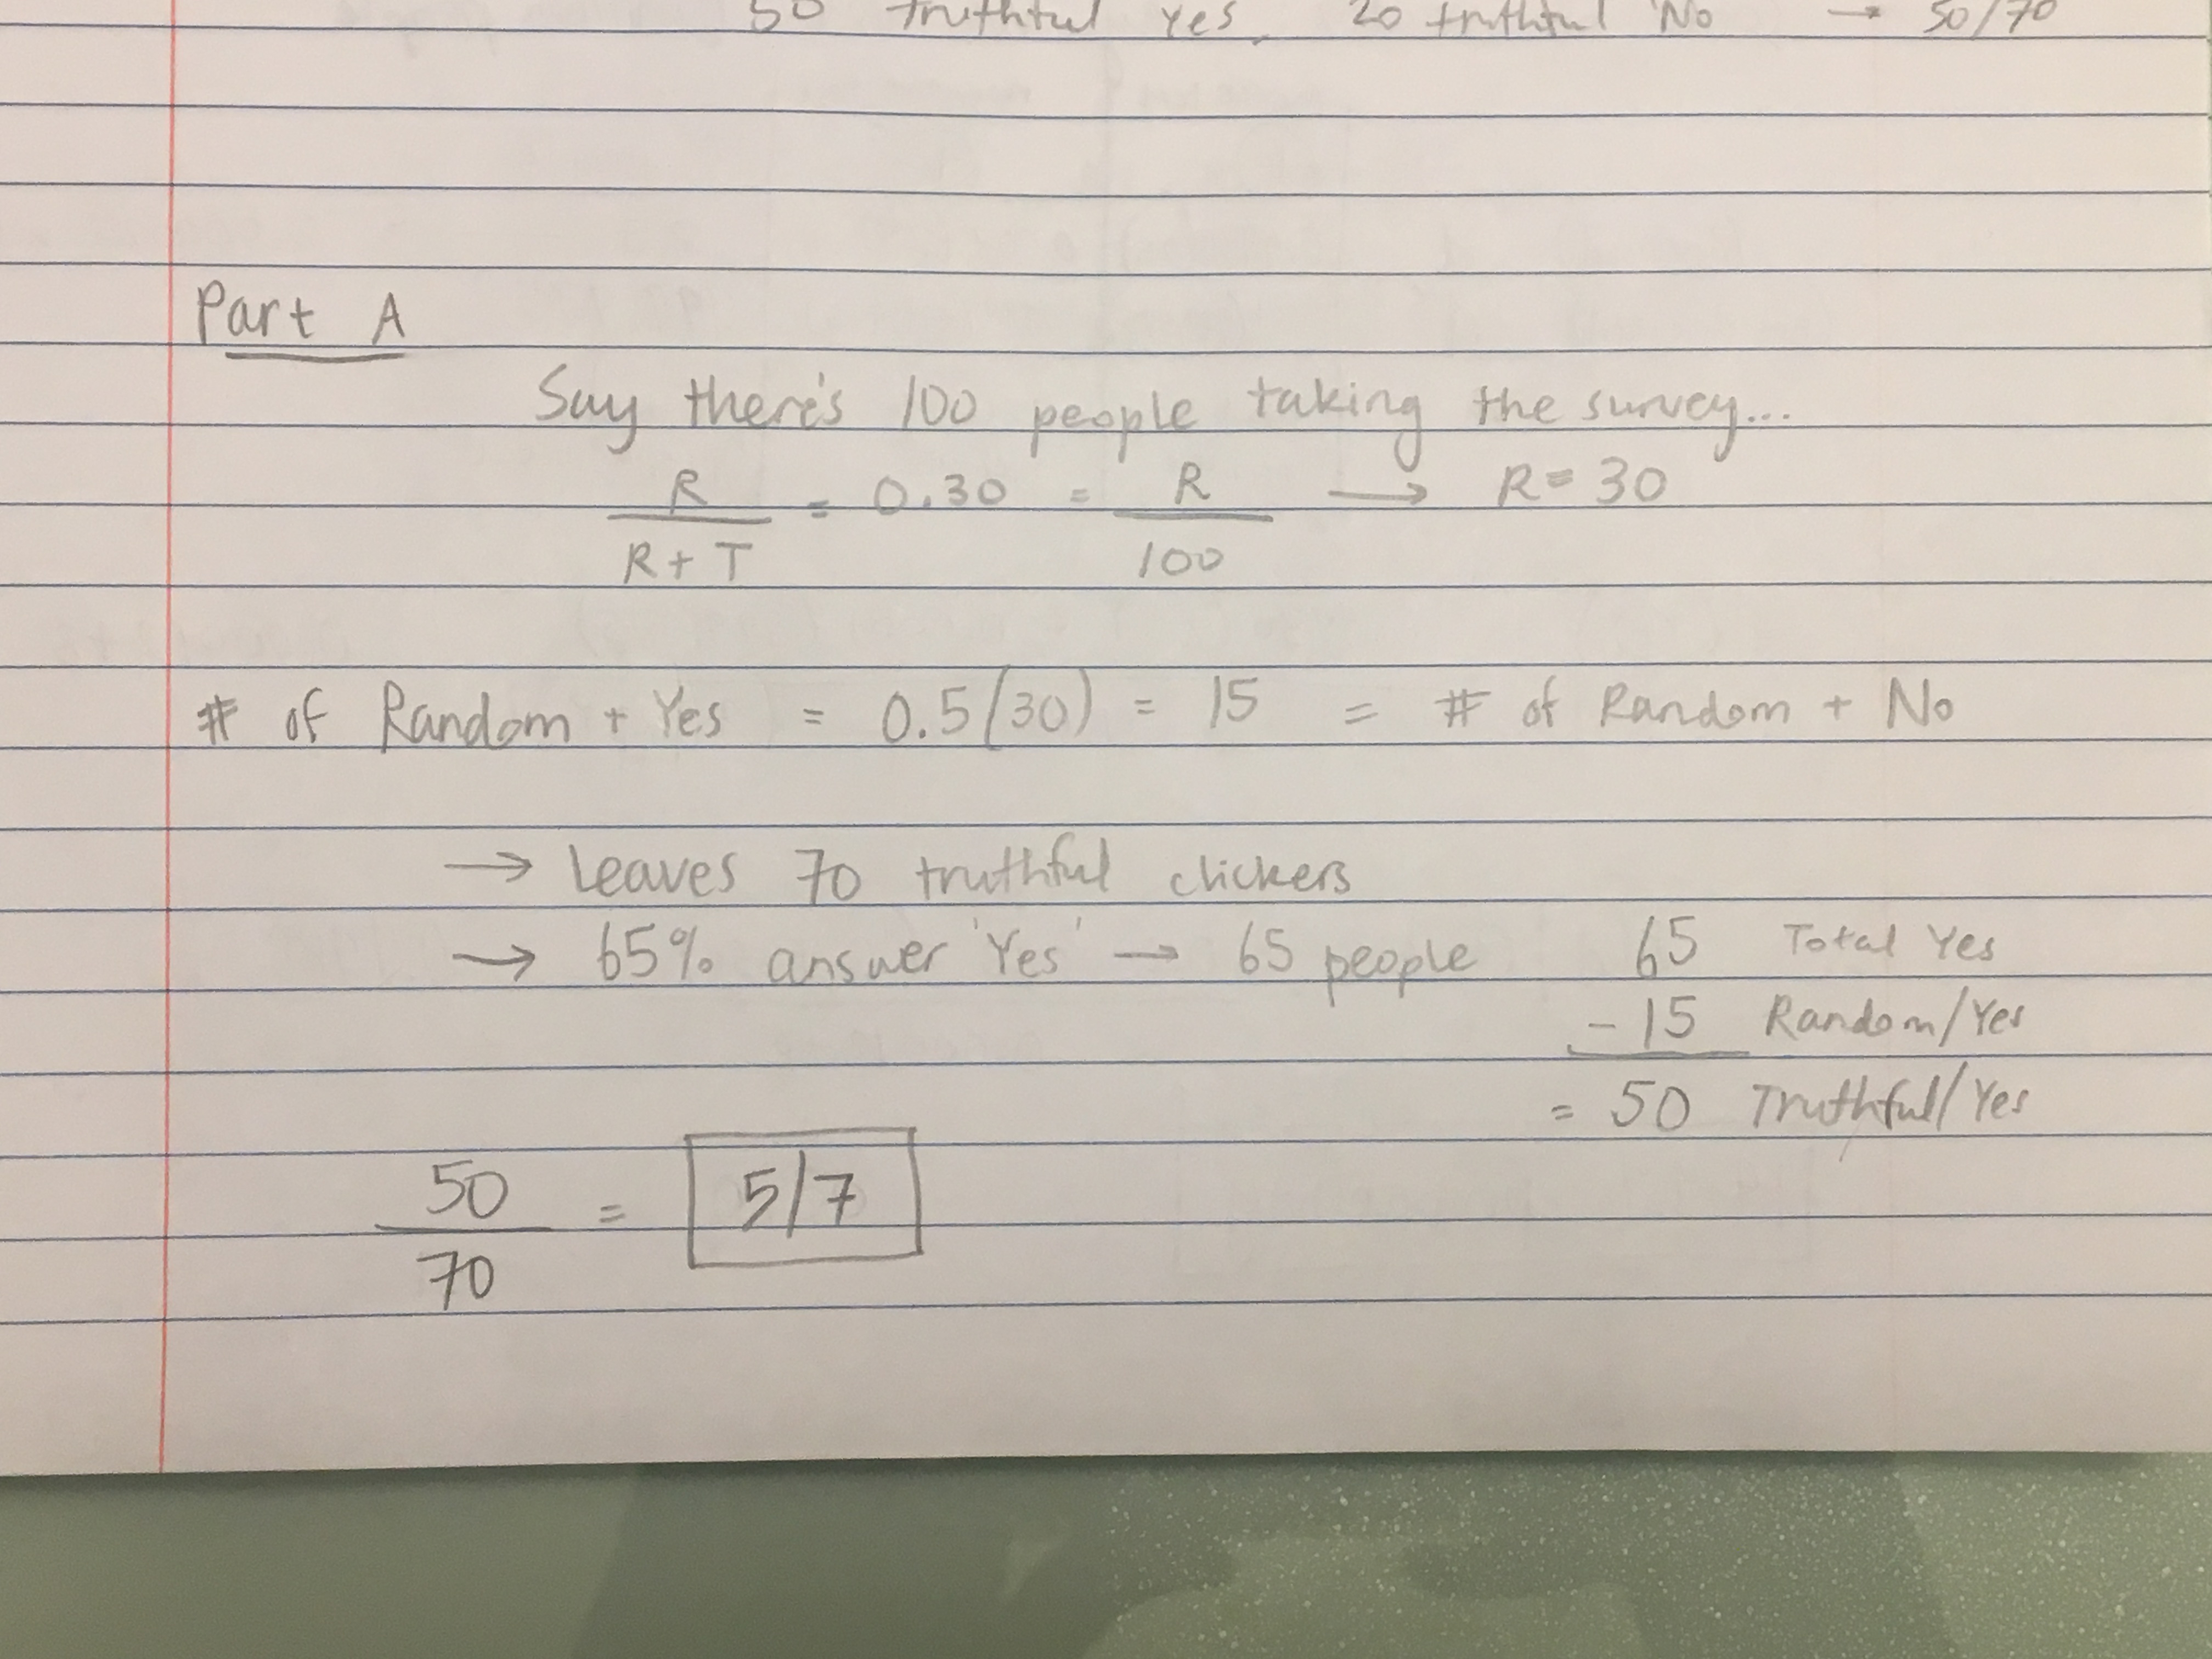 50 truthful Yes, 20 truthful No → 50/70
Part A
Say there's 100 people taking the survey...
R / R + T = 0.30 = R / 100 → R = 30
# of Random + Yes = 0.5(30) = 15 = # of Random + No
→ Leaves 70 truthful clickers
→ 65% answer 'Yes' → 65 people
65 Total Yes
- 15 Random/Yes
= 50 Truthful/Yes
50 / 70 = 5/7